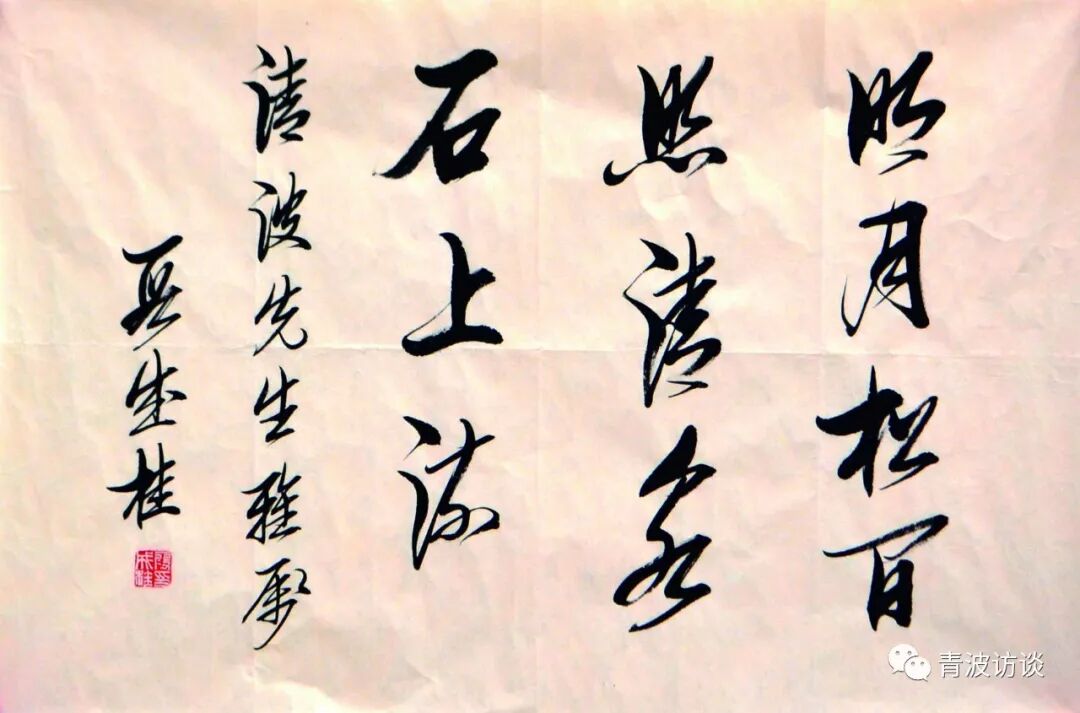 明月松间
照清泉
石上流
清波先生雅属
成桂
青波访谈